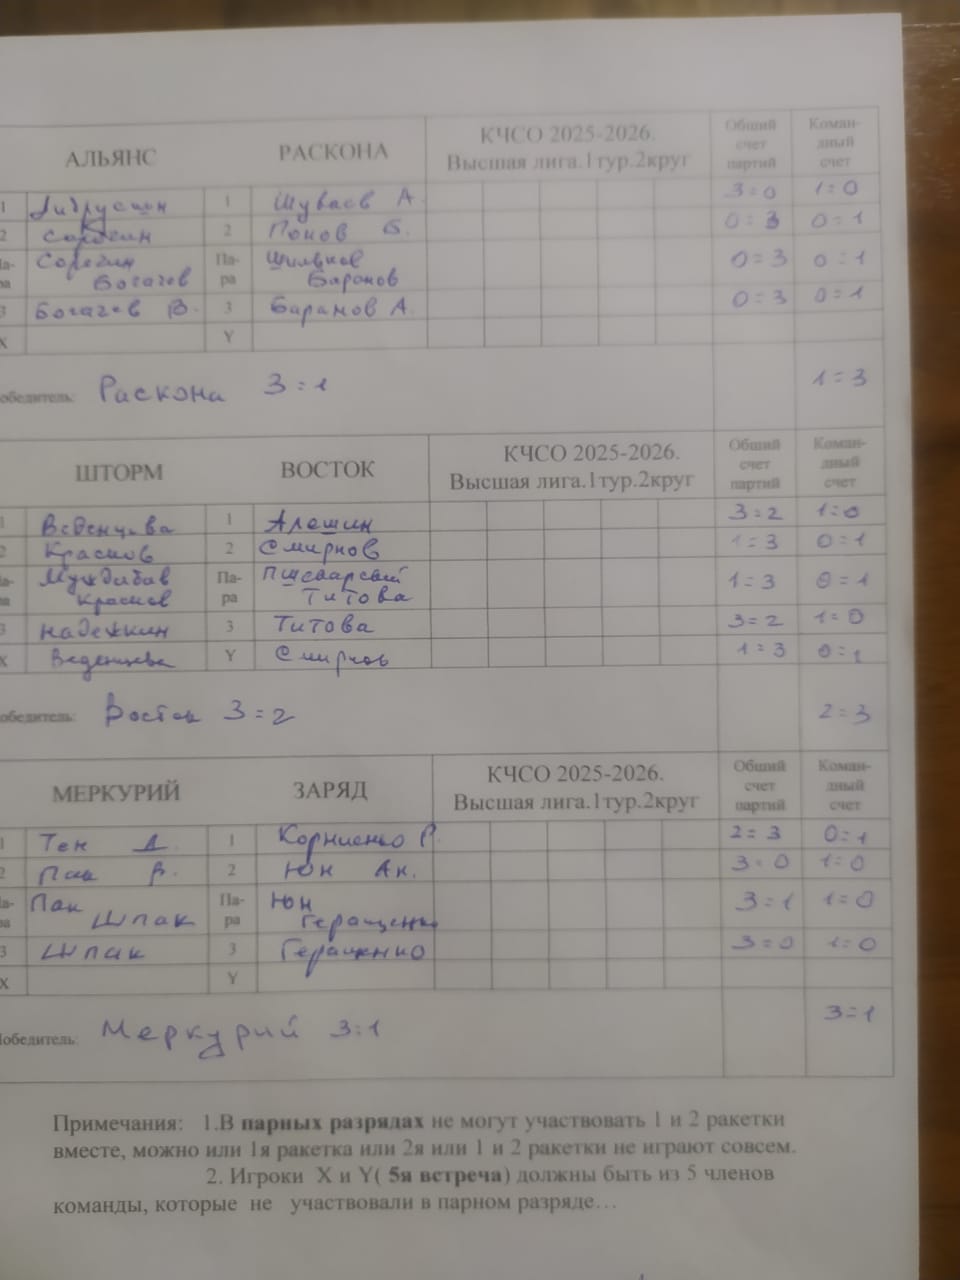 АЛЬЯНС РАСКОНА КЧСО 2025-2026. Высшая лига.1тур.2круг Общий счет партий Коман-дный счет
1 1 Шуваев А. 3=0 1=0
2 Сорокин 2 Попов Б. 0=3 0=1
Сорокин Богачев Па-ра Баранов 0=3 0=1
3 Богачев В. 3 Баранов А. 0=3 0=1
X Y
Раскона 3:1 1=3
ШТОРМ ВОСТОК КЧСО 2025-2026. Высшая лига.1тур.2круг Общий счет партий Коман-дный счет
1 Веденцева 1 Алешин 3=2 1=0
2 Краснов 2 Смирнов 1=3 0=1
Краснов Па-ра Титова 1=3 0=1
3 Надежкин 3 Титова 3=2 1=0
X Веденцева Y Смирнов 1=3 0=1
Восток 3=2 2=3
МЕРКУРИЙ ЗАРЯД КЧСО 2025-2026. Высшая лига.1тур.2круг Общий счет партий Коман-дный счет
1 Тен Д. 1 Корниенко Р. 2=3 0=1
2 Пак В. 2 Юн Ан. 3=0 1=0
Пак Шпак Па-ра Юн Геращенко 3=1 1=0
3 Шпак 3 Геращенко 3=0 1=0
X Y
Победитель: Меркурий 3:1 3=1
Примечания: 1.В парных разрядах не могут участвовать 1 и 2 ракетки
вместе, можно или 1я ракетка или 2я или 1 и 2 ракетки не играют совсем.
2. Игроки X и Y( 5я встреча) должны быть из 5 членов
команды, которые не участвовали в парном разряде…